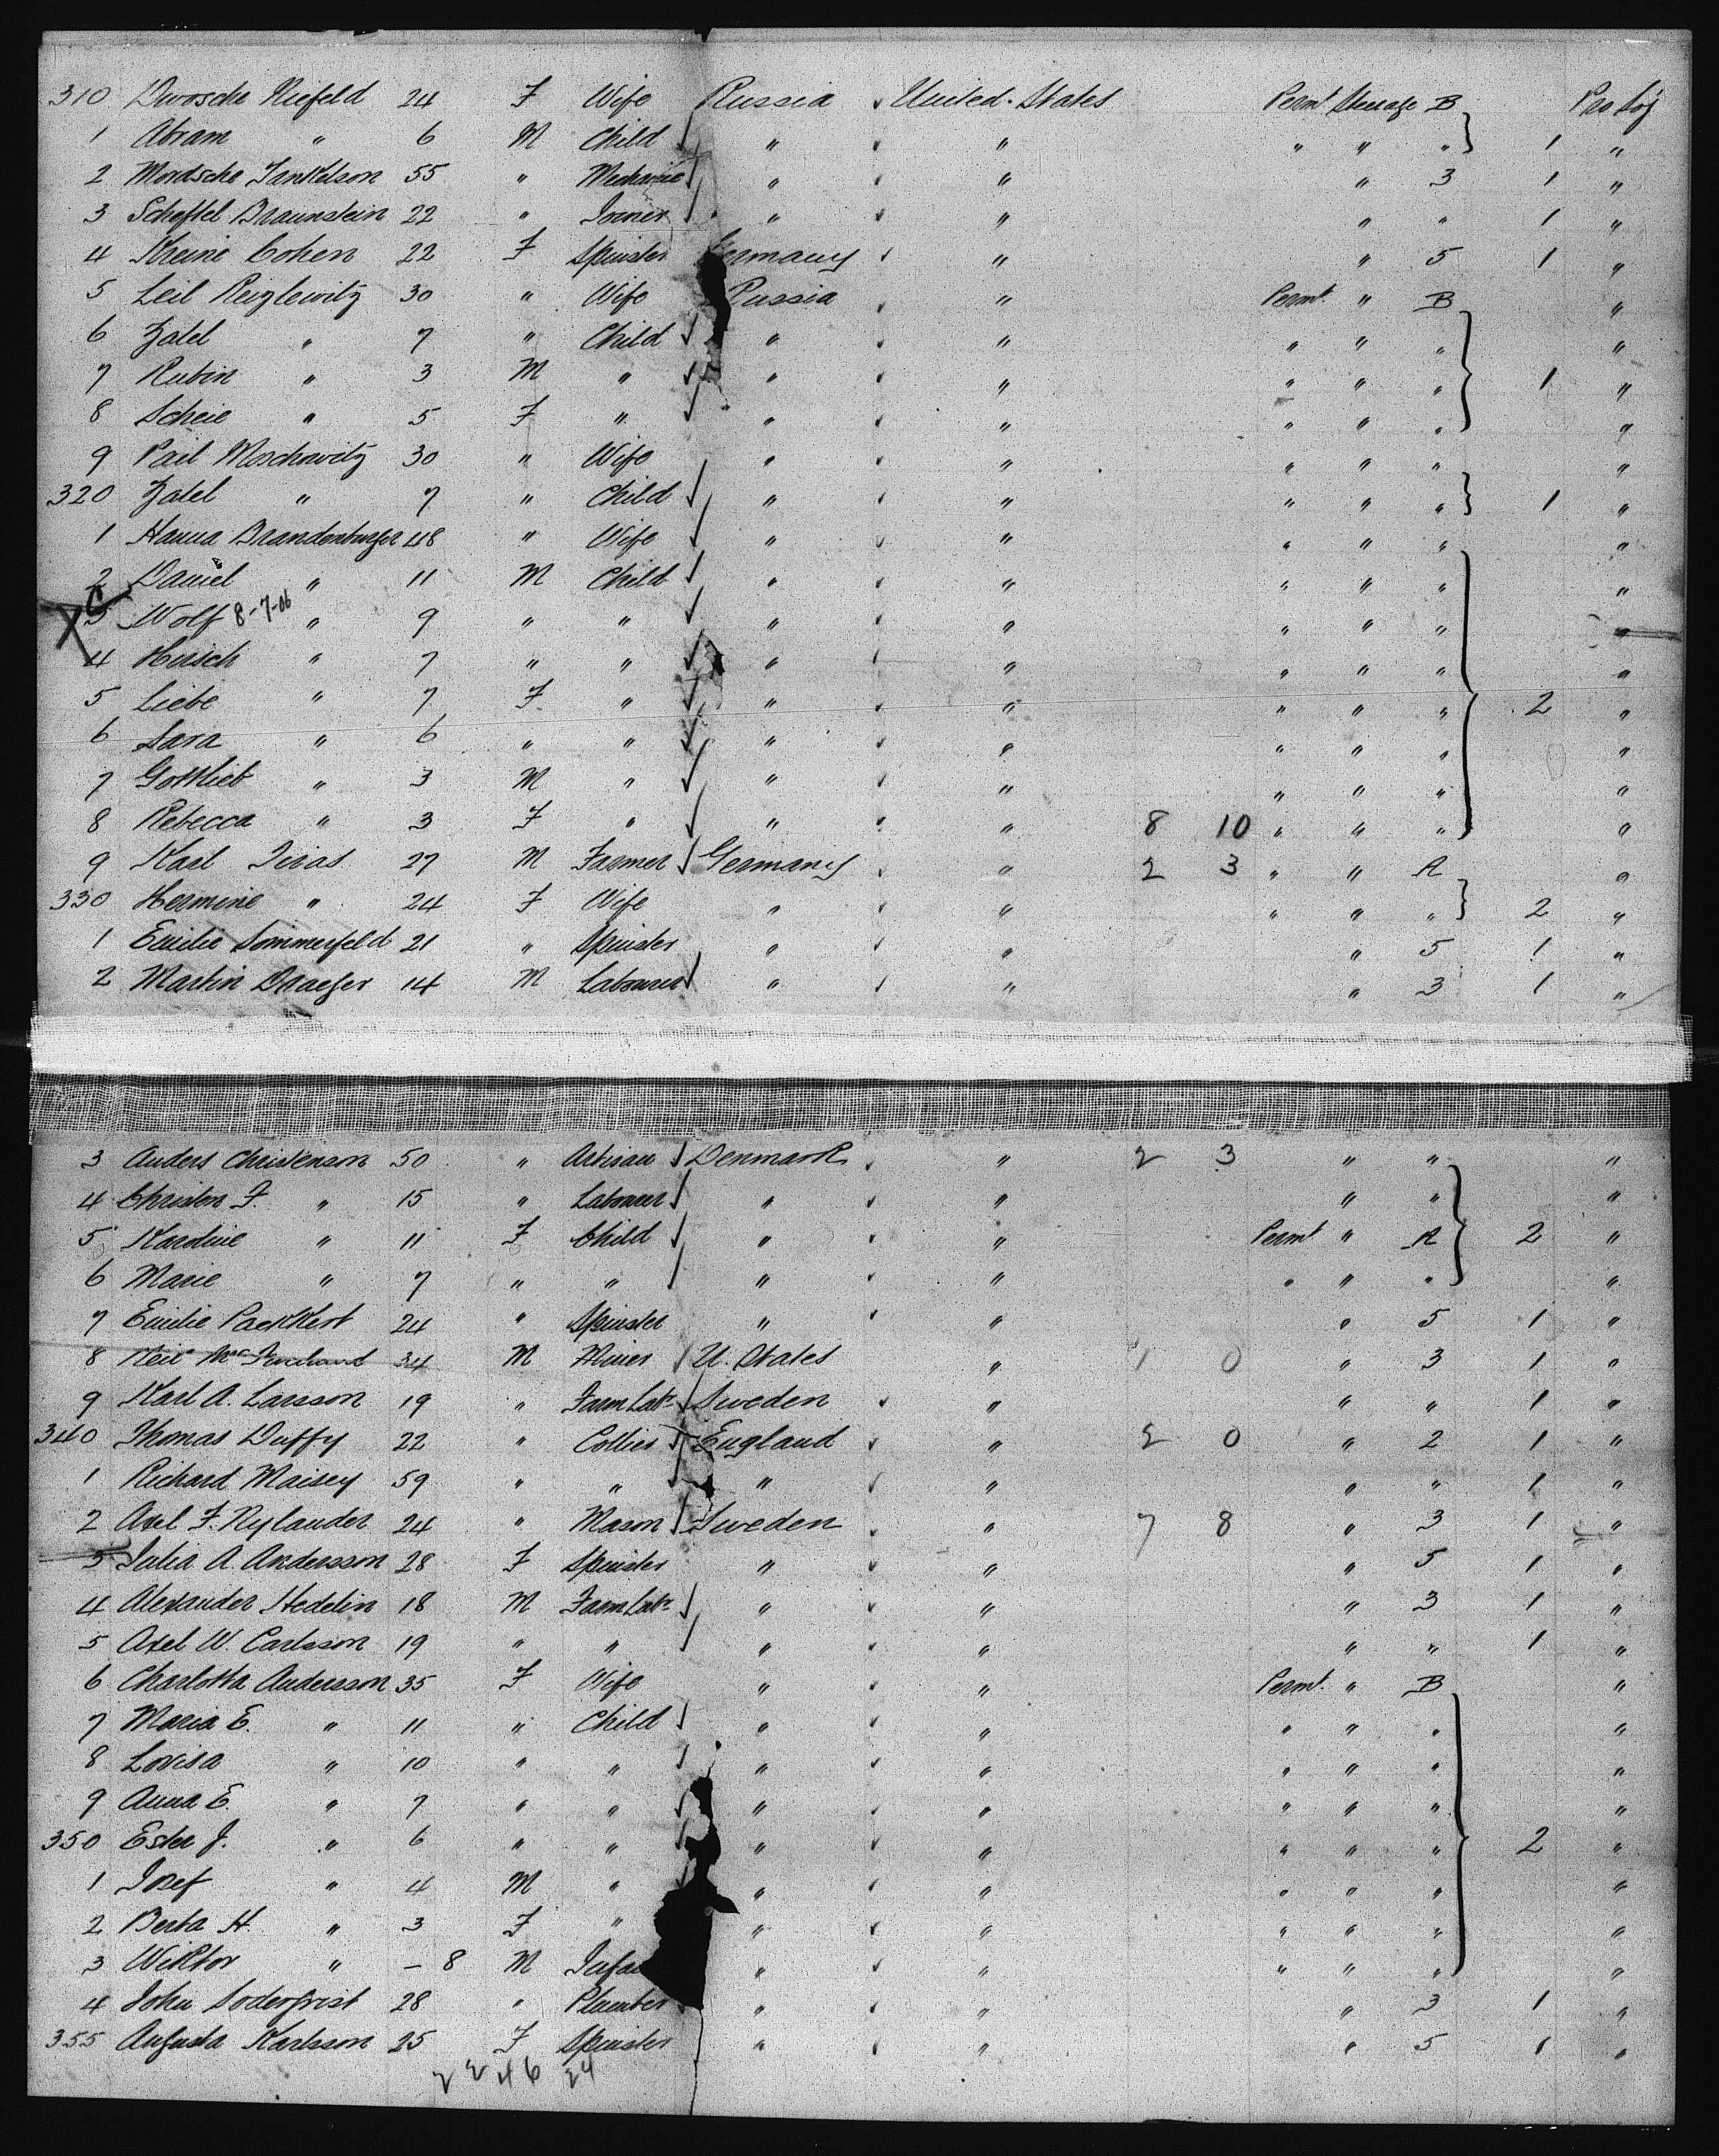 310 Dwosche Kiefeld 24 F Wife Russia ✓ United States Permt Steerage B Pro Soj
1 Abram " 6 M Child ✓ " ✓ " " " " 1 "
2 Mordsche Jankelson 55 " Mechanic ✓ " ✓ " " 3 1 "
3 Scheftel Braunstein 22 " Joiner ✓ " ✓ " " " 1 "
4 Kreine Cohen 22 F Spinster Germany ✓ " " 5 1 "
5 Leib Reiglewitz 30 " Wife Russia ✓ " Permt. " B "
6 Zatel " 7 " Child ✓ " ✓ " " " " "
7 Rubin " 3 M " ✓ " ✓ " " " " 1 "
8 Scheie " 5 F " ✓ " ✓ " " " " "
9 Pail Moschowitz 30 " Wife " ✓ " " " " "
320 Zatel " 7 " Child ✓ " ✓ " " " " 1 "
1 Hanna Brandenburger 48 " Wife ✓ " ✓ " " " " "
2 Daniel " 11 M Child ✓ " ✓ " " " " "
X C 3 Wolf 8-7-06 " 9 " " ✓ " ✓ " " " " "
4 Hirsch " 7 " " ✓ " ✓ " " " " "
5 Liebe " 7 F " ✓ " ✓ " " " " 2 "
6 Sara " 6 " " ✓ " ✓ " " " " "
7 Gottlieb " 3 M " ✓ " ✓ " " " " "
8 Rebecca " 3 F " ✓ " ✓ " 8 10 " " " "
9 Karl 27 M Farmer ✓ Germany ✓ " 2 3 " " A "
330 Hermine " 24 F Wife " ✓ " " " " 2 "
1 Emilie Sommerfeld 21 " Spinster " ✓ " " 5 1 "
2 Martin Draeger 14 M Labourer ✓ " ✓ " " 3 1 "
3 Anders Christenson 50 " Artisan ✓ Denmark ✓ " 2 3 " " "
4 Christen F. " 15 " Labourer ✓ " ✓ " " " "
5 Karoline " 11 F Child ✓ " ✓ " Permt " A 2 "
6 Marie " 7 " " ✓ " ✓ " " " " "
7 Emilie Packkert 24 " Spinster " ✓ " " 5 1 "
8 Neil 34 M Miner ✓ U. States " 1 0 " 3 1 "
9 Karl A. Larsson 19 " Farm Labr ✓ Sweden ✓ " " " 1 "
340 Thomas Duffy 22 " Collier ✓ England ✓ " 2 0 " 2 1 "
1 Richard Maisey 59 " " ✓ " ✓ " " " 1 "
2 Axel F. Nylander 24 " Mason ✓ Sweden ✓ " 7 8 " 3 1 "
3 Julia A. Andersson 28 F Spinster " ✓ " " 5 1 "
4 Alexander Hedelin 18 M Farm Labr ✓ " ✓ " " 3 1 "
5 Axel W. Carlsson 19 " " ✓ " ✓ " " " 1 "
6 Charlotta Andersson 35 F Wife " ✓ " Permt. " B "
7 Maria E. " 11 " Child ✓ " ✓ " " " " "
8 Lovisa " 10 " " ✓ " ✓ " " " " "
9 Anna E. " 7 " " ✓ " ✓ " " " " "
350 Ester J. " 6 " " ✓ " ✓ " " " " 2 "
1 Josef " 4 M " ✓ " ✓ " " " " "
2 Berta H. " 3 F " " ✓ " " " " "
3 Wiktor " – 8 M " ✓ " " " " "
4 John Soderqvist 28 " Plumber " ✓ " " 3 1 "
355 Augusta Karlsson 25 F Spinster " ✓ " " 5 1 "
2 2 46 24